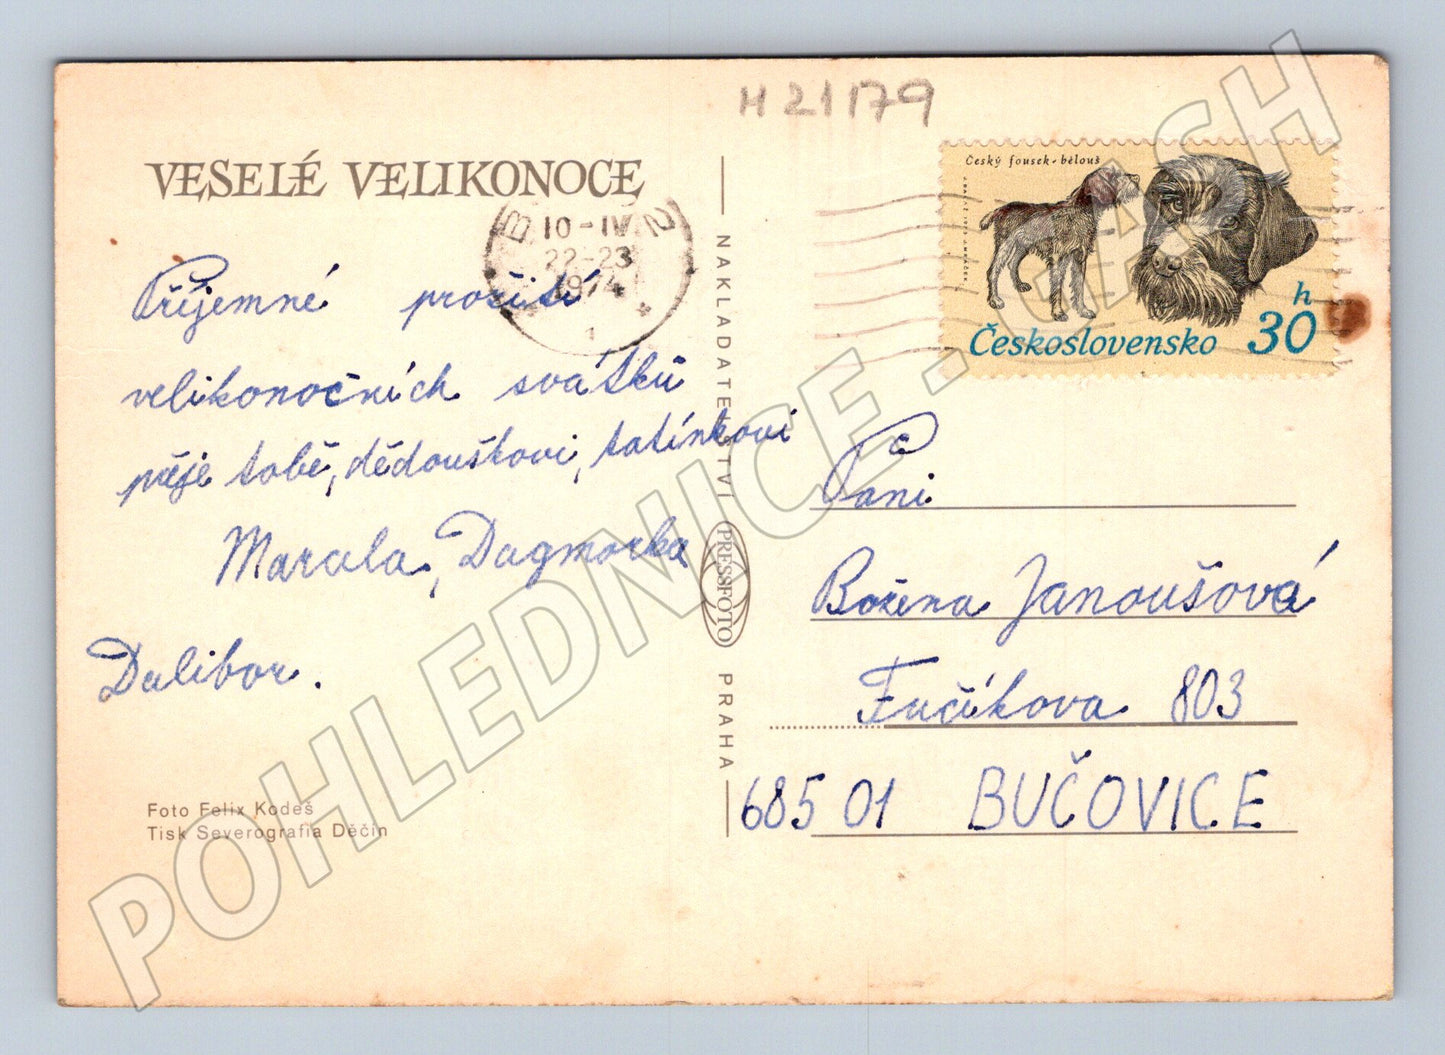 H 21179
VESELÉ VELIKONOCE
10-IV.
22-23
1974
1
Příjemné prožití
velikonočních svátků
přeje tobě, dědouškovi, tatínkovi
Marcela, Dagmarka
Dalibor.
Foto Felix Kodeš
Tisk Severografia Děčín
NAKLADATELSTVÍ
PRESSFOTO
PRAHA
Český fousek - bělouš
Československo 30 h
Paní
Božena Janoušová
Fučíkova 803
685 01 BUČOVICE
POHLEDNICE - CASH